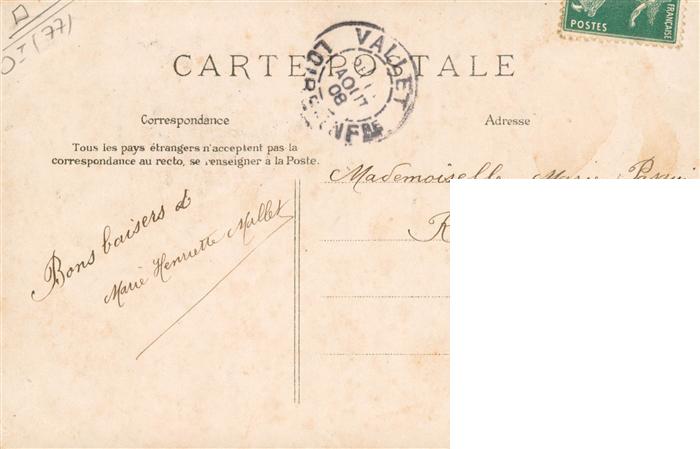 (77)
POSTES
FRANÇAISE
CARTE POSTALE
VALLET
AOUT
08
LOIRE-INFRE
Correspondance
Adresse
Tous les pays étrangers n'acceptent pas la
correspondance au recto, se renseigner à la Poste.
Mademoiselle Marie
Bons baisers d
Marie Henriette Mallet